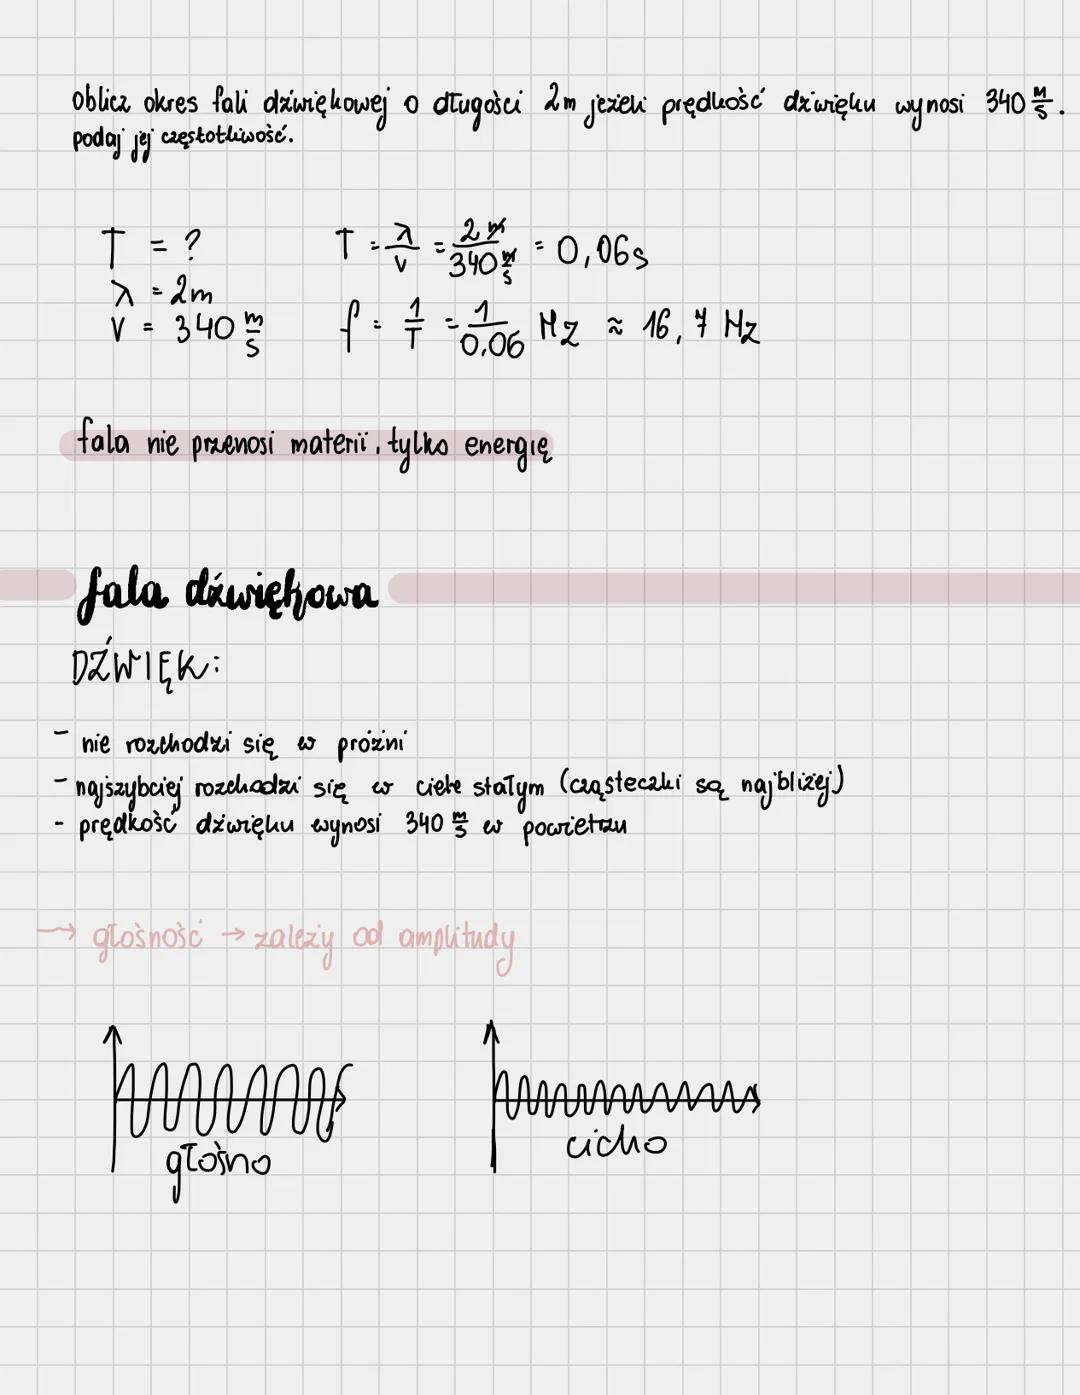 oblicz okres fali dźwiękowej o długości 2m jeżeli prędkość dźwięku wynosi 340 m/s.
podaj jej częstotliwość.
T = ? T = λ/v = 2m/340 m/s = 0,06s
λ = 2m
V = 340 m/s f = 1/T = 1/0,06 Hz ≈ 16,7 Hz
fala nie przenosi materii, tylko energię
fala dźwiękowa
DŹWIĘK:
- nie rozchodzi się w próżni
- najszybciej rozchodzi się w ciele stałym (cząsteczki są najbliżej)
- prędkość dźwięku wynosi 340 m/s w powietrzu
→ głośność → zależy od amplitudy
głośno cicho